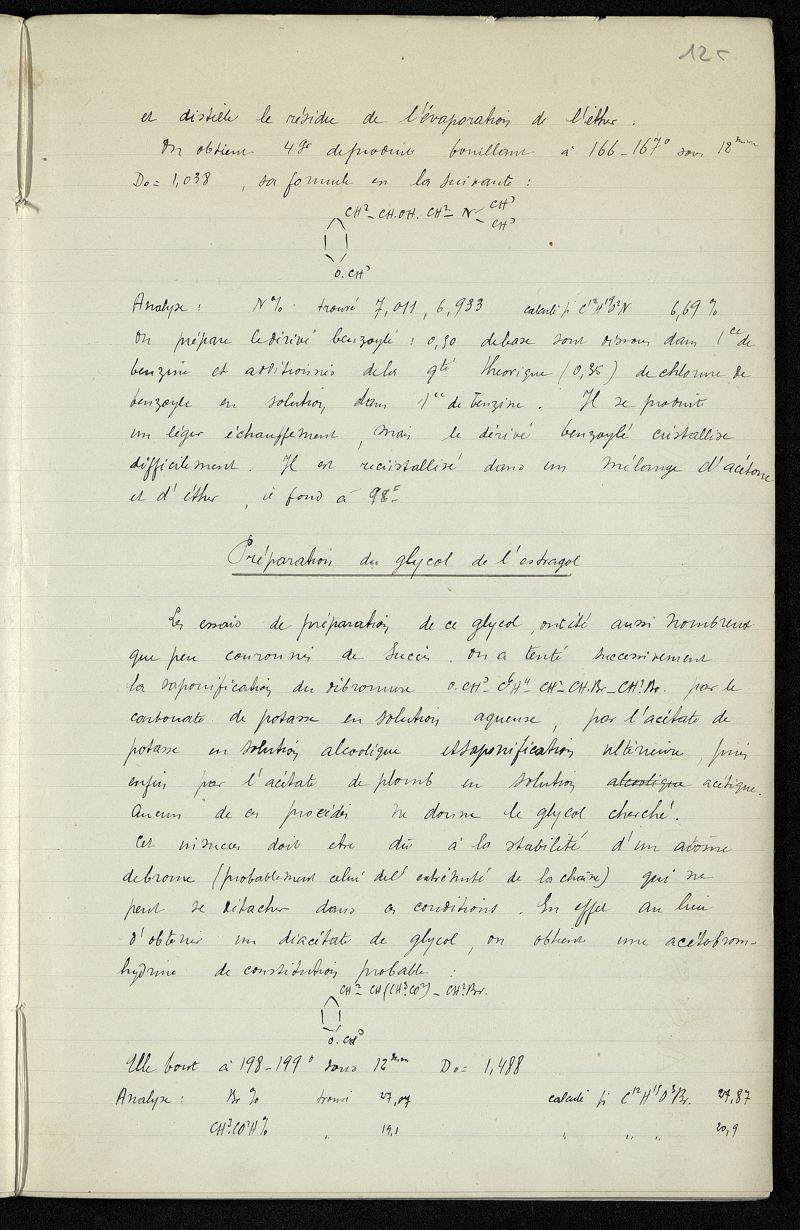 125
et distille le résidu de l'évaporation de l'éther.
On obtient 4gr de produit bouillant à 166-167° sous 12mm
Do = 1,038, sa formule est la suivante :
CH²- CH.OH. CH² - N - CH³
- CH³
O.CH³
Analyse : N% trouvé 7,011, 6,933 calculé pr C¹²H¹⁹O²N 6,69 %
On prépare le dérivé benzoylé : 0,50 de base sont dissous dans 1cc de
benzine et additionnés de la qté théorique (0,35) de chlorure de
benzoyle en solution dans 1cc de benzine. Il se produit
un léger échauffement, mais le dérivé benzoylé cristallise
difficilement. Il est recristallisé dans un mélange d'acétone
et d'éther, il fond à 98°
Préparation du glycol de l'estragol
Les essais de préparation de ce glycol, ont été aussi nombreux
que peu couronnés de succès. On a tenté successivement
la saponification du dibromure O.CH³- C⁶H⁴- CH²- CH.Br - CH²Br. par le
carbonate de potasse en solution aqueuse, par l'acétate de
potasse en solution alcoolique et saponification ultérieure, puis
enfin par l'acétate de plomb en solution alcoolique acétique.
Aucun de ces procédés ne donne le glycol cherché.
Cet insuccès doit etre dû à la stabilité d'un atome
de brome (probablement celui de l'extrémité de la chaîne) qui ne
peut se détacher dans ces conditions. En effet au lieu
d'obtenir un diacétate de glycol, on obtient une acétobrom-
hydrine de constitution probable :
CH²- CH(CH³CO²) - CH²Br.
O.CH³
Elle bout à 198-199° sous 12mm Do = 1,488
Analyse : Br % trouvé 27,07 calculé pr C¹²H¹⁵O³Br. 27,87
CH³CO²H % " 19,1 " " " 20,9